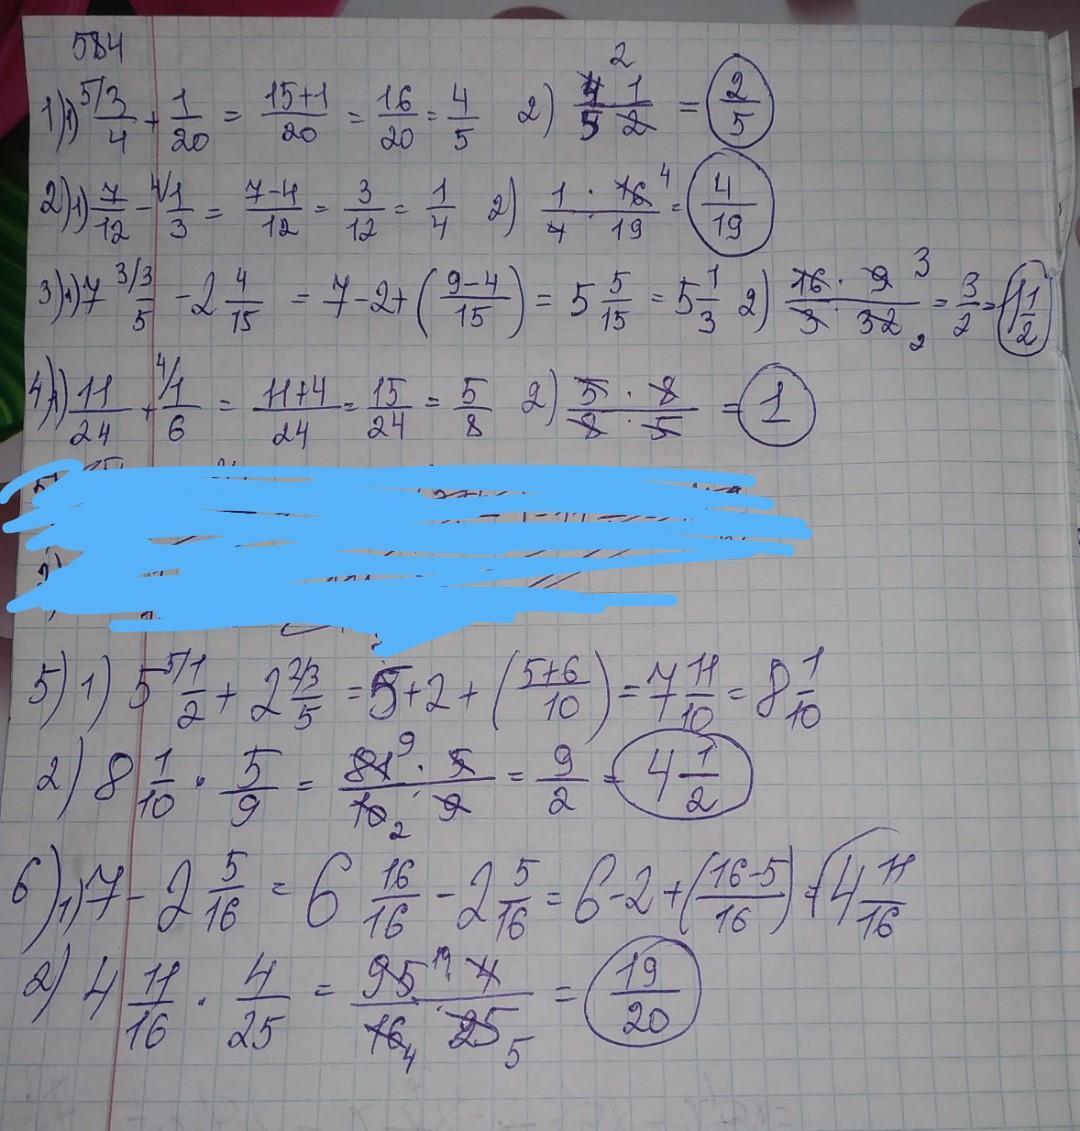 584
1) 1) 5/ 3/4 + 1/20 = 15+1/20 = 16/20 = 4/5 2) 4 1 / 5 2 2 = (2/5)
2) 1) 7/12 - 4/ 1/3 = 7-4/12 = 3/12 = 1/4 2) 1 · 16 4 / 4 · 19 = (4/19)
3) 1) 7 3/ 3/5 - 2 4/15 = 7-2+(9-4/15) = 5 5/15 = 5 1/3 2) 16 · 9 3 / 3 · 32 2 = 3/2 = 1 1/2
4) 1) 11/24 + 4/ 1/6 = 11+4/24 = 15/24 = 5/8 2) 5 · 8 / 8 · 5 = 1
5) 1) 5 5/ 1/2 + 2 2/ 3/5 = 5+2+(5+6/10) = 7 11/10 = 8 1/10
2) 8 1/10 · 5/9 = 81 9 · 5 / 10 2 · 9 = 9/2 = 4 1/2
6) 1) 7 - 2 5/16 = 6 16/16 - 2 5/16 = 6-2+(16-5/16) = 4 11/16
2) 4 11/16 · 4/25 = 95 19 · 4 / 16 4 · 25 5 = 19/20